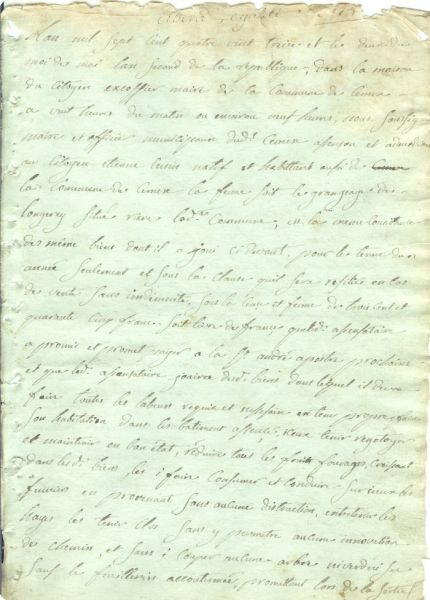 Liberté, égalité
L'an mil sept cent quatre vint treize et le deux du
moi de mai l'an second de la republique, dans la maison
du citoyen excoffier maire de la commune de
a vint heures du matin ou environ neuf heures, nous soussignés
maire et officier municipaux dud. assenson et admodions
au citoyen etienne natif et habittant aussi de
la commune de la ferme soit le grangeage de
longerey situé riere lad.te commune, et la même consistance
des même biens dont il a joui ci devant, pour le terme d'un
année seulement et sous la clause quil sera resilié en cas
de vente sans indemnité, sous la cense et ferme de trois cent et
quarante cinq franc soit livre de france que led. assensataire
a promit et promet payer a la St andré apotre prochaine
et que led. assensataire jouira desd. biens dans lequel il devra
faire toutes les labeurs requis et necessaire en leur propre
son habitation dans les batiment assensés, iceux tenir
et maintenir en bon état, reduire tous les fruits fourages croissant
dans lesd. biens, les i faire consumer et conduire sur iceux les
fumiers en provenant sans aucune distraction, entretenir les
hayes les tenir clos sans y permettre aucune innovation
de chemin, et sans i couper aucune arbre
sauf le feuillerin accoutumée, promettant lors de la sortie